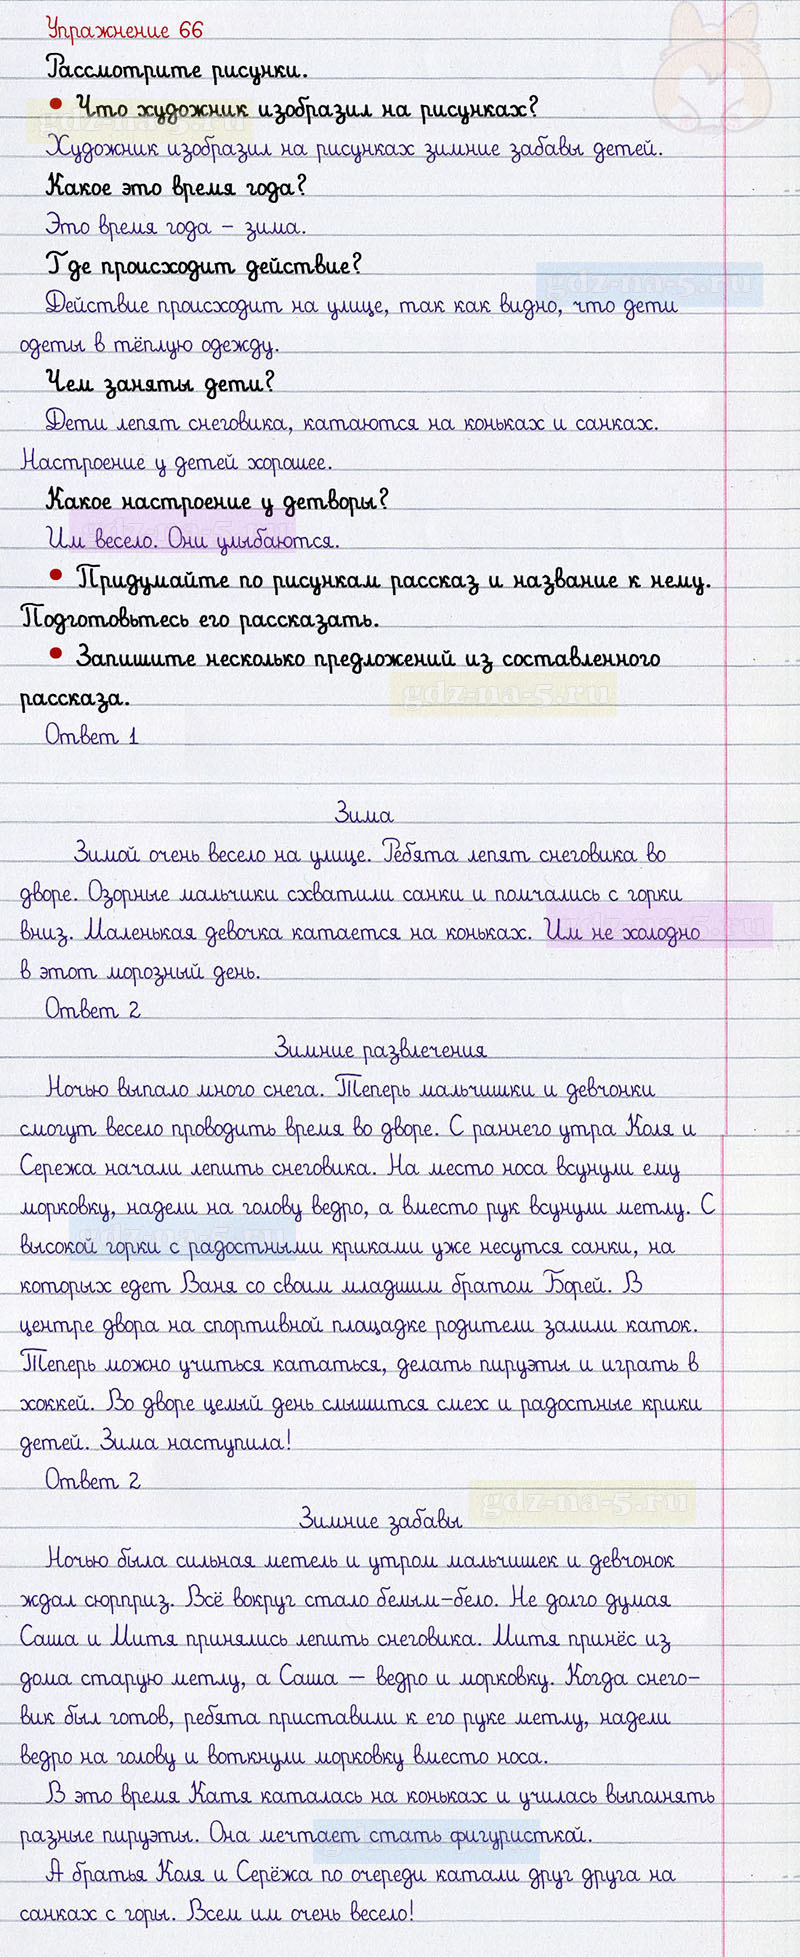 Упражнение 66
Рассмотрите рисунки.
• Что художник изобразил на рисунках?
gdz-na-5.ru
Художник изобразил на рисунках зимние забавы детей.
Какое это время года?
Это время года – зима.
Где происходит действие?
gdz-na-5.ru
Действие происходит на улице, так как видно, что дети
одеты в тёплую одежду.
Чем заняты дети?
Дети лепят снеговика, катаются на коньках и санках.
Настроение у детей хорошее.
Какое настроение у детворы?
gdz-na-5.ru
Им весело. Они улыбаются.
• Придумайте по рисункам рассказ и название к нему.
Подготовьтесь его рассказать.
• Запишите несколько предложений из составленного
рассказа.
gdz-na-5.ru
Ответ 1
Зима
Зимой очень весело на улице. Ребята лепят снеговика во
дворе. Озорные мальчики схватили санки и помчались с горки
вниз. Маленькая девочка катается на коньках. Им не холодно
gdz-na-5.ru
в этот морозный день.
Ответ 2
Зимние развлечения
Ночью выпало много снега. Теперь мальчишки и девчонки
смогут весело проводить время во дворе. С раннего утра Коля и
Сережа начали лепить снеговика. На место носа всунули ему
морковку, надели на голову ведро, а вместо рук всунули метлу. С
gdz-na-5.ru
высокой горки с радостными криками уже несутся санки, на
которых едет Ваня со своим младшим братом Борей. В
центре двора на спортивной площадке родители залили каток.
Теперь можно учиться кататься, делать пируэты и играть в
хоккей. Во дворе целый день слышится смех и радостные крики
детей. Зима наступила!
Ответ 2
gdz-na-5.ru
Зимние забавы
Ночью была сильная метель и утром мальчишек и девчонок
ждал сюрприз. Всё вокруг стало белым-бело. Не долго думая
Саша и Митя принялись лепить снеговика. Митя принёс из
дома старую метлу, а Саша — ведро и морковку. Когда снего-
вик был готов, ребята приставили к его руке метлу, надели
ведро на голову и воткнули морковку вместо носа.
В это время Катя каталась на коньках и училась выполнять
разные пируэты. Она мечтает стать фигуристкой.
gdz-na-5.ru
А братья Коля и Серёжа по очереди катали друг друга на
санках с горы. Всем им очень весело!